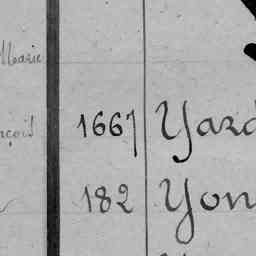 Marie
nçois 1667 Yard
182 Yon